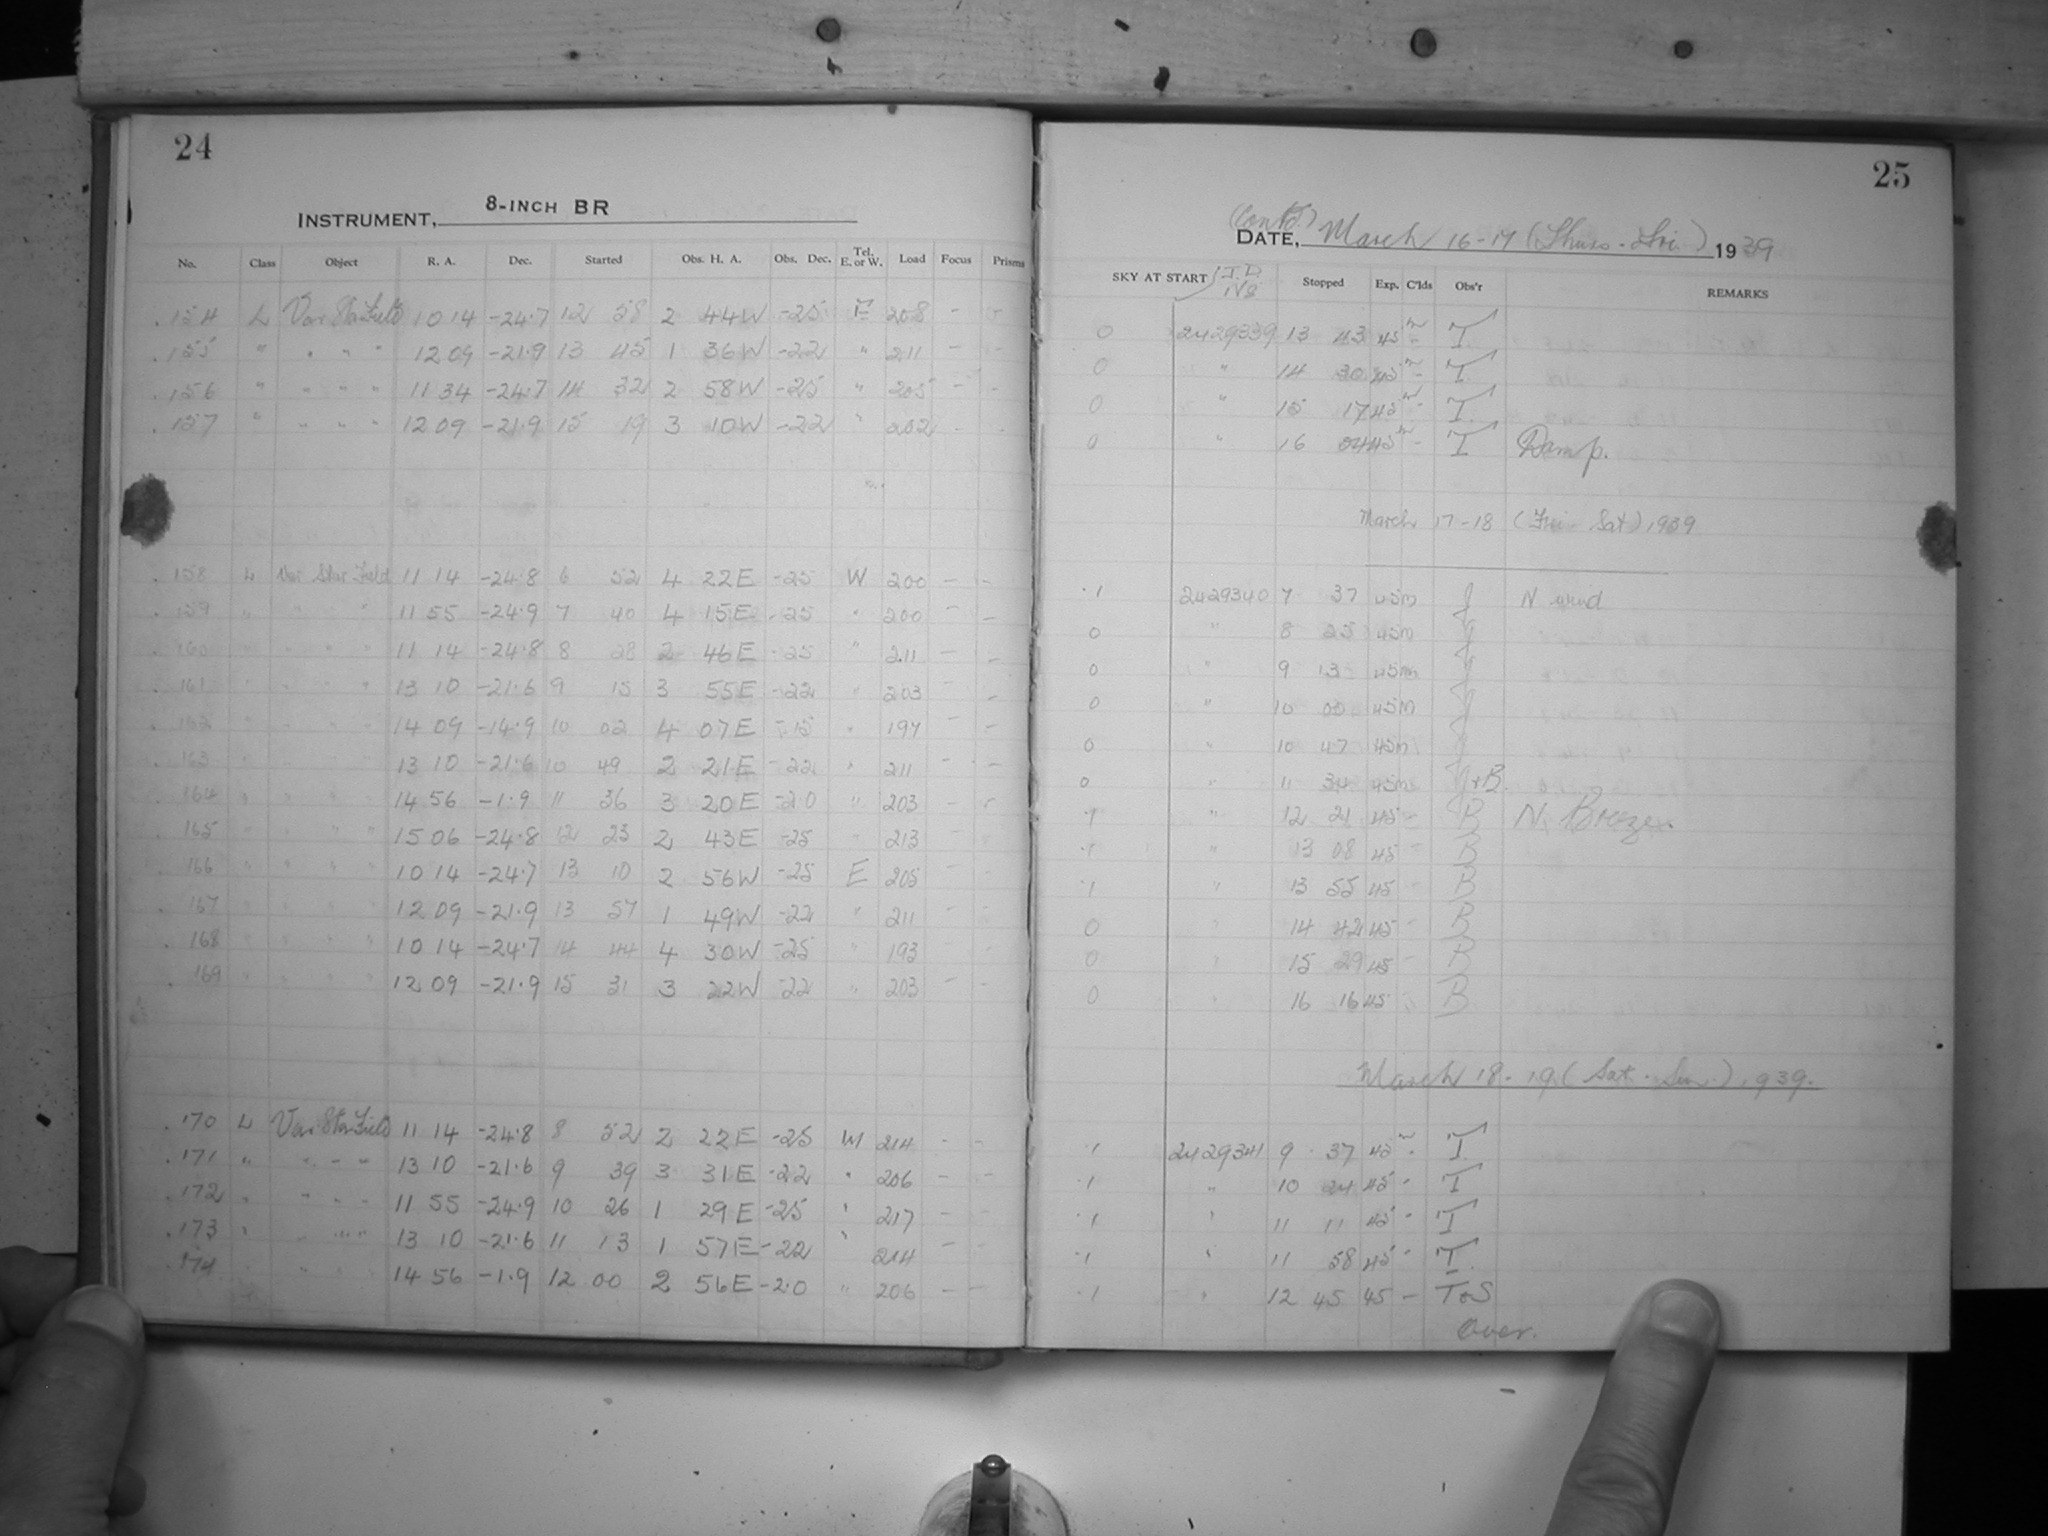 24
INSTRUMENT, 8-INCH BR
No. Class Object R. A. Dec. Started Obs. H. A. Obs. Dec. Tel. E. or W. Load Focus Prisms
154 L Var Star Field 10 14 -24.7 12 58 2 44W -25 E 208 -
155 " " " " 12 09 -21.9 13 45 1 36W -22 " 211 - -
156 " " " " 11 34 -24.7 14 32 2 58W -25 " 205 - -
157 " " " " 12 09 -21.9 15 19 3 10W -22 " 202 - -
158 L Var Star Field 11 14 -24.8 6 52 4 22E -25 W 200 - -
159 " " " " 11 55 -24.9 7 40 4 15E -25 " 200 - -
160 " " " " 11 14 -24.8 8 28 2 46E -25 " 211 - -
161 " " " " 13 10 -21.6 9 15 3 55E -22 " 203 - -
162 " " " " 14 09 -14.9 10 02 4 07E -15 " 197 - -
163 " " " " 13 10 -21.6 10 49 2 21E -22 " 211 - -
164 " " " " 14 56 -1.9 11 36 3 20E -2.0 " 203 - -
165 " " " " 15 06 -24.8 12 23 2 43E -25 " 213 -
166 " " " " 10 14 -24.7 13 10 2 56W -25 E 205 -
167 " " " " 12 09 -21.9 13 57 1 49W -22 " 211 - -
168 " " " " 10 14 -24.7 14 44 4 30W -25 " 193 -
169 " " " " 12 09 -21.9 15 31 3 22W -22 " 203 - -
170 L Var Star Field 11 14 -24.8 8 52 2 22E -25 W 214 - -
171 " " " " 13 10 -21.6 9 39 3 31E -22 " 206 - -
172 " " " " 11 55 -24.9 10 26 1 29E -25 " 217 - -
173 " " " " 13 10 -21.6 11 13 1 57E -22 " 214 - -
174 " " " " 14 56 -1.9 12 00 2 56E -2.0 " 206 - -
25
(Contd.)
DATE, March 16-17 (Thurs-Fri) 1939
SKY AT START J.D. Stopped Exp. C'lds Obs'r REMARKS
0 2429339 13 43 45m - I
0 " 14 30 45m - I
0 " 15 17 45m - I
0 " 16 04 45m - I Damp.
March 17-18 (Fri-Sat) 1939
.1 2429340 7 37 45m J N wind
0 " 8 25 45m J
0 " 9 13 45m J
0 " 10 00 45m J
0 " 10 47 45m J
0 " 11 34 45m J+B.
.1 " 12 21 45 - B N. Breeze.
.1 " 13 08 45 - B
.1 " 13 55 45 - B
0 " 14 42 45 - B
0 " 15 29 45 - B
0 " 16 16 45 - B
March 18-19 (Sat-Sun.) 1939.
.1 2429341 9 37 45m - I
.1 " 10 24 45 - I
.1 " 11 11 45 - I
.1 " 11 58 45 - I.
.1 " 12 45 45 - I+S
Over.